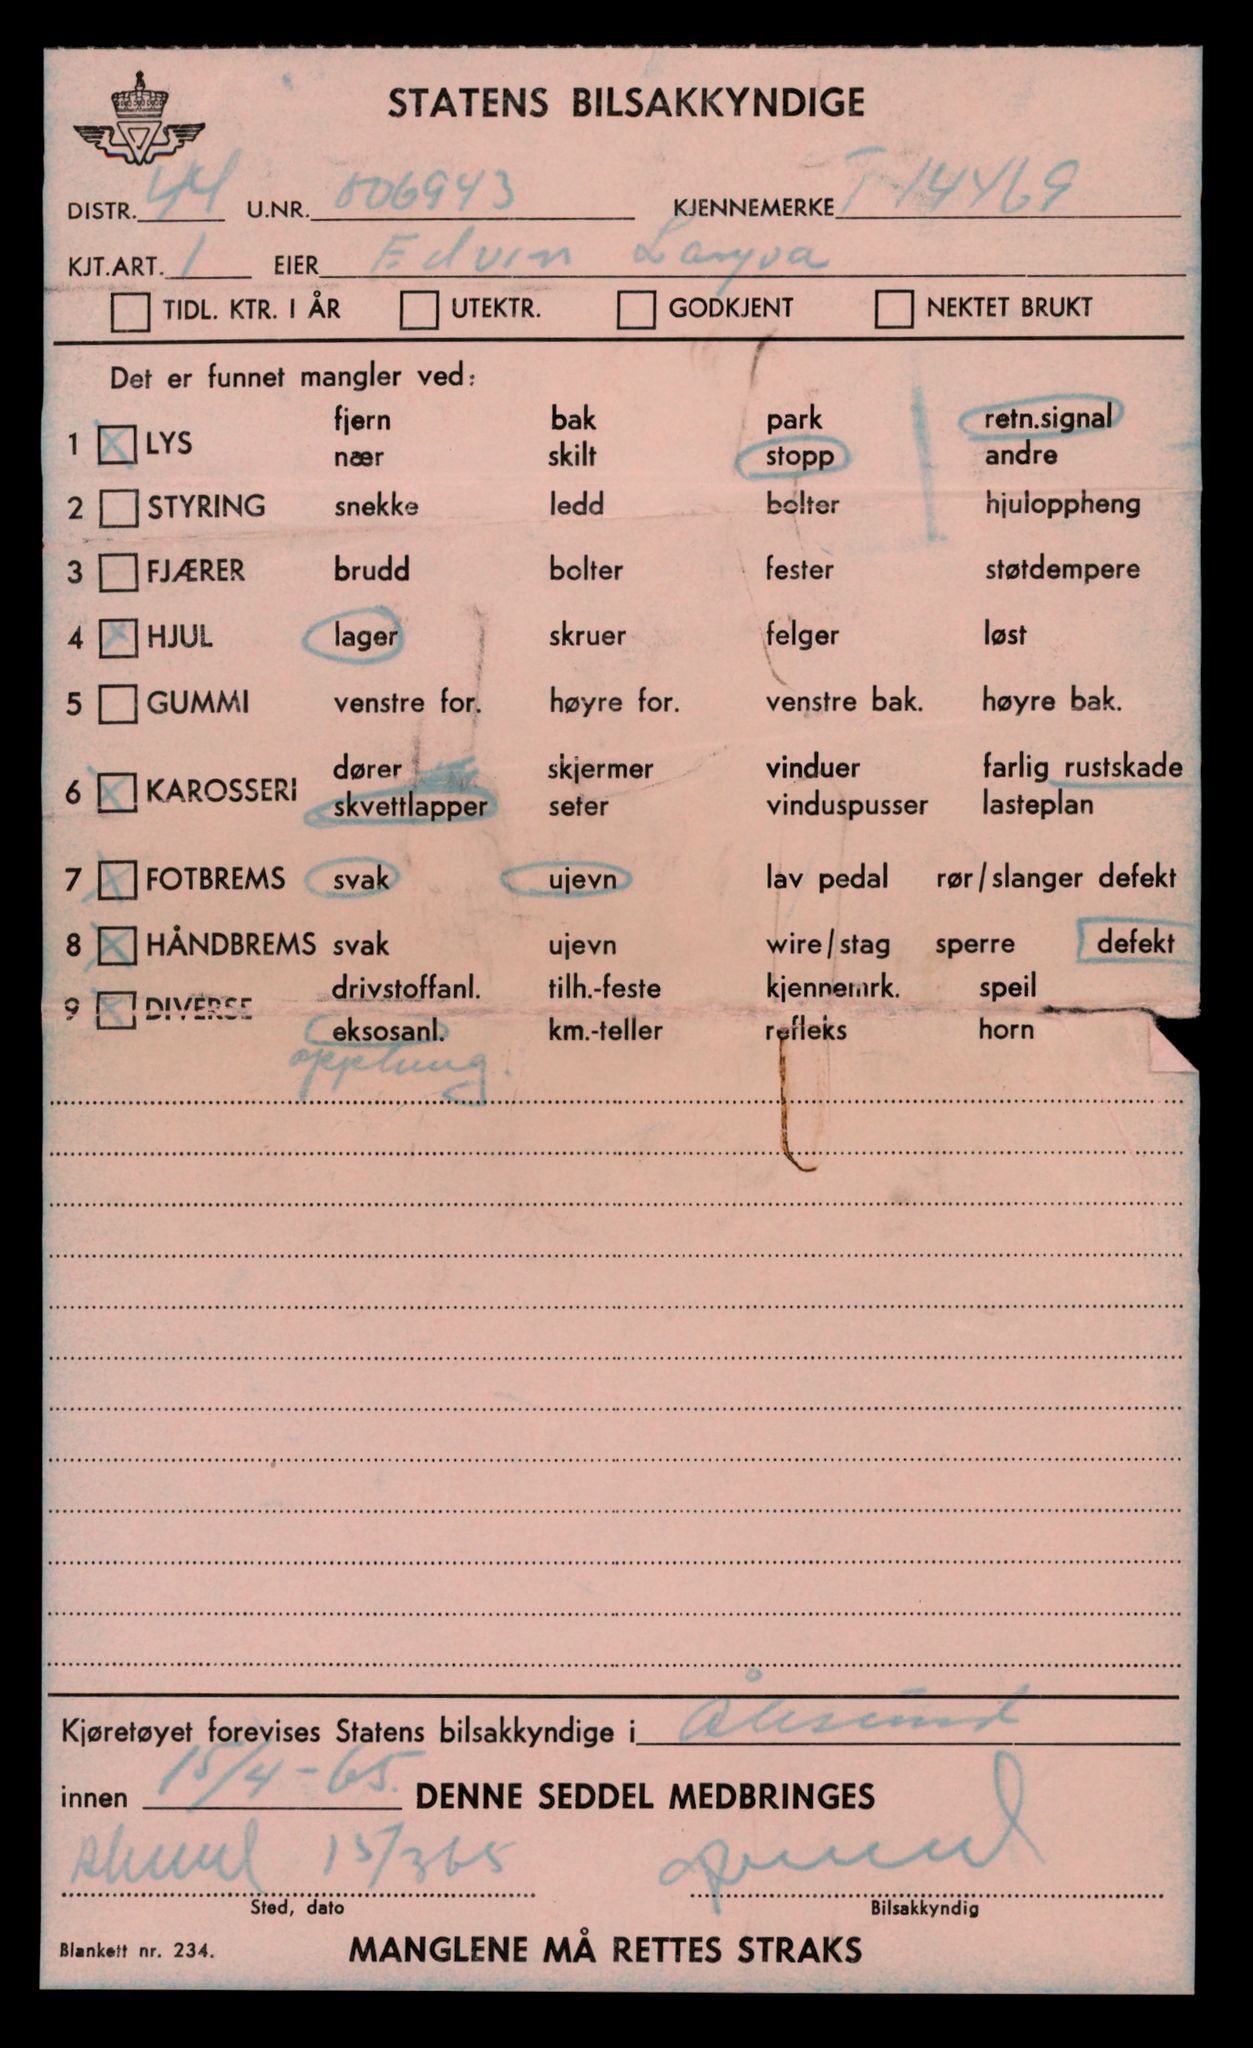 STATENS BILSAKKYNDIGE
DISTR. 44 U.NR. 006943 KJENNEMERKE T-14469
KJT.ART. 1 EIER Edvin
TIDL. KTR. I ÅR UTEKTR. GODKJENT NEKTET BRUKT
Det er funnet mangler ved:
fjern bak park retn.signal
1 LYS
nær skilt stopp andre
2 STYRING snekke ledd bolter hjuloppheng
3 FJÆRER brudd bolter fester støtdempere
4 HJUL lager skruer felger løst
5 GUMMI venstre for. høyre for. venstre bak. høyre bak.
dører skjermer vinduer farlig rustskade
6 KAROSSERI
skvettlapper seter vinduspusser lasteplan
7 FOTBREMS svak ujevn lav pedal rør/slanger defekt
8 HÅNDBREMS svak ujevn wire/stag sperre defekt
drivstoffanl. tilh.-feste kjennemrk. speil
9 DIVERSE
eksosanl. km.-teller refleks horn
Kjøretøyet forevises Statens bilsakkyndige i Ålesund
innen 15/4-65. DENNE SEDDEL MEDBRINGES
15/3 65
Sted, dato Bilsakkyndig
Blankett nr. 234. MANGLENE MÅ RETTES STRAKS